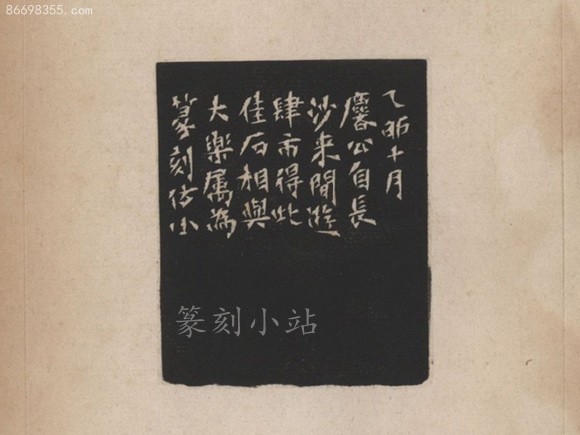 乙夘十月
公自長
沙来閒遊
肆市得此
佳石相與
大樂属為
篆刻
篆刻小站
86698355.com